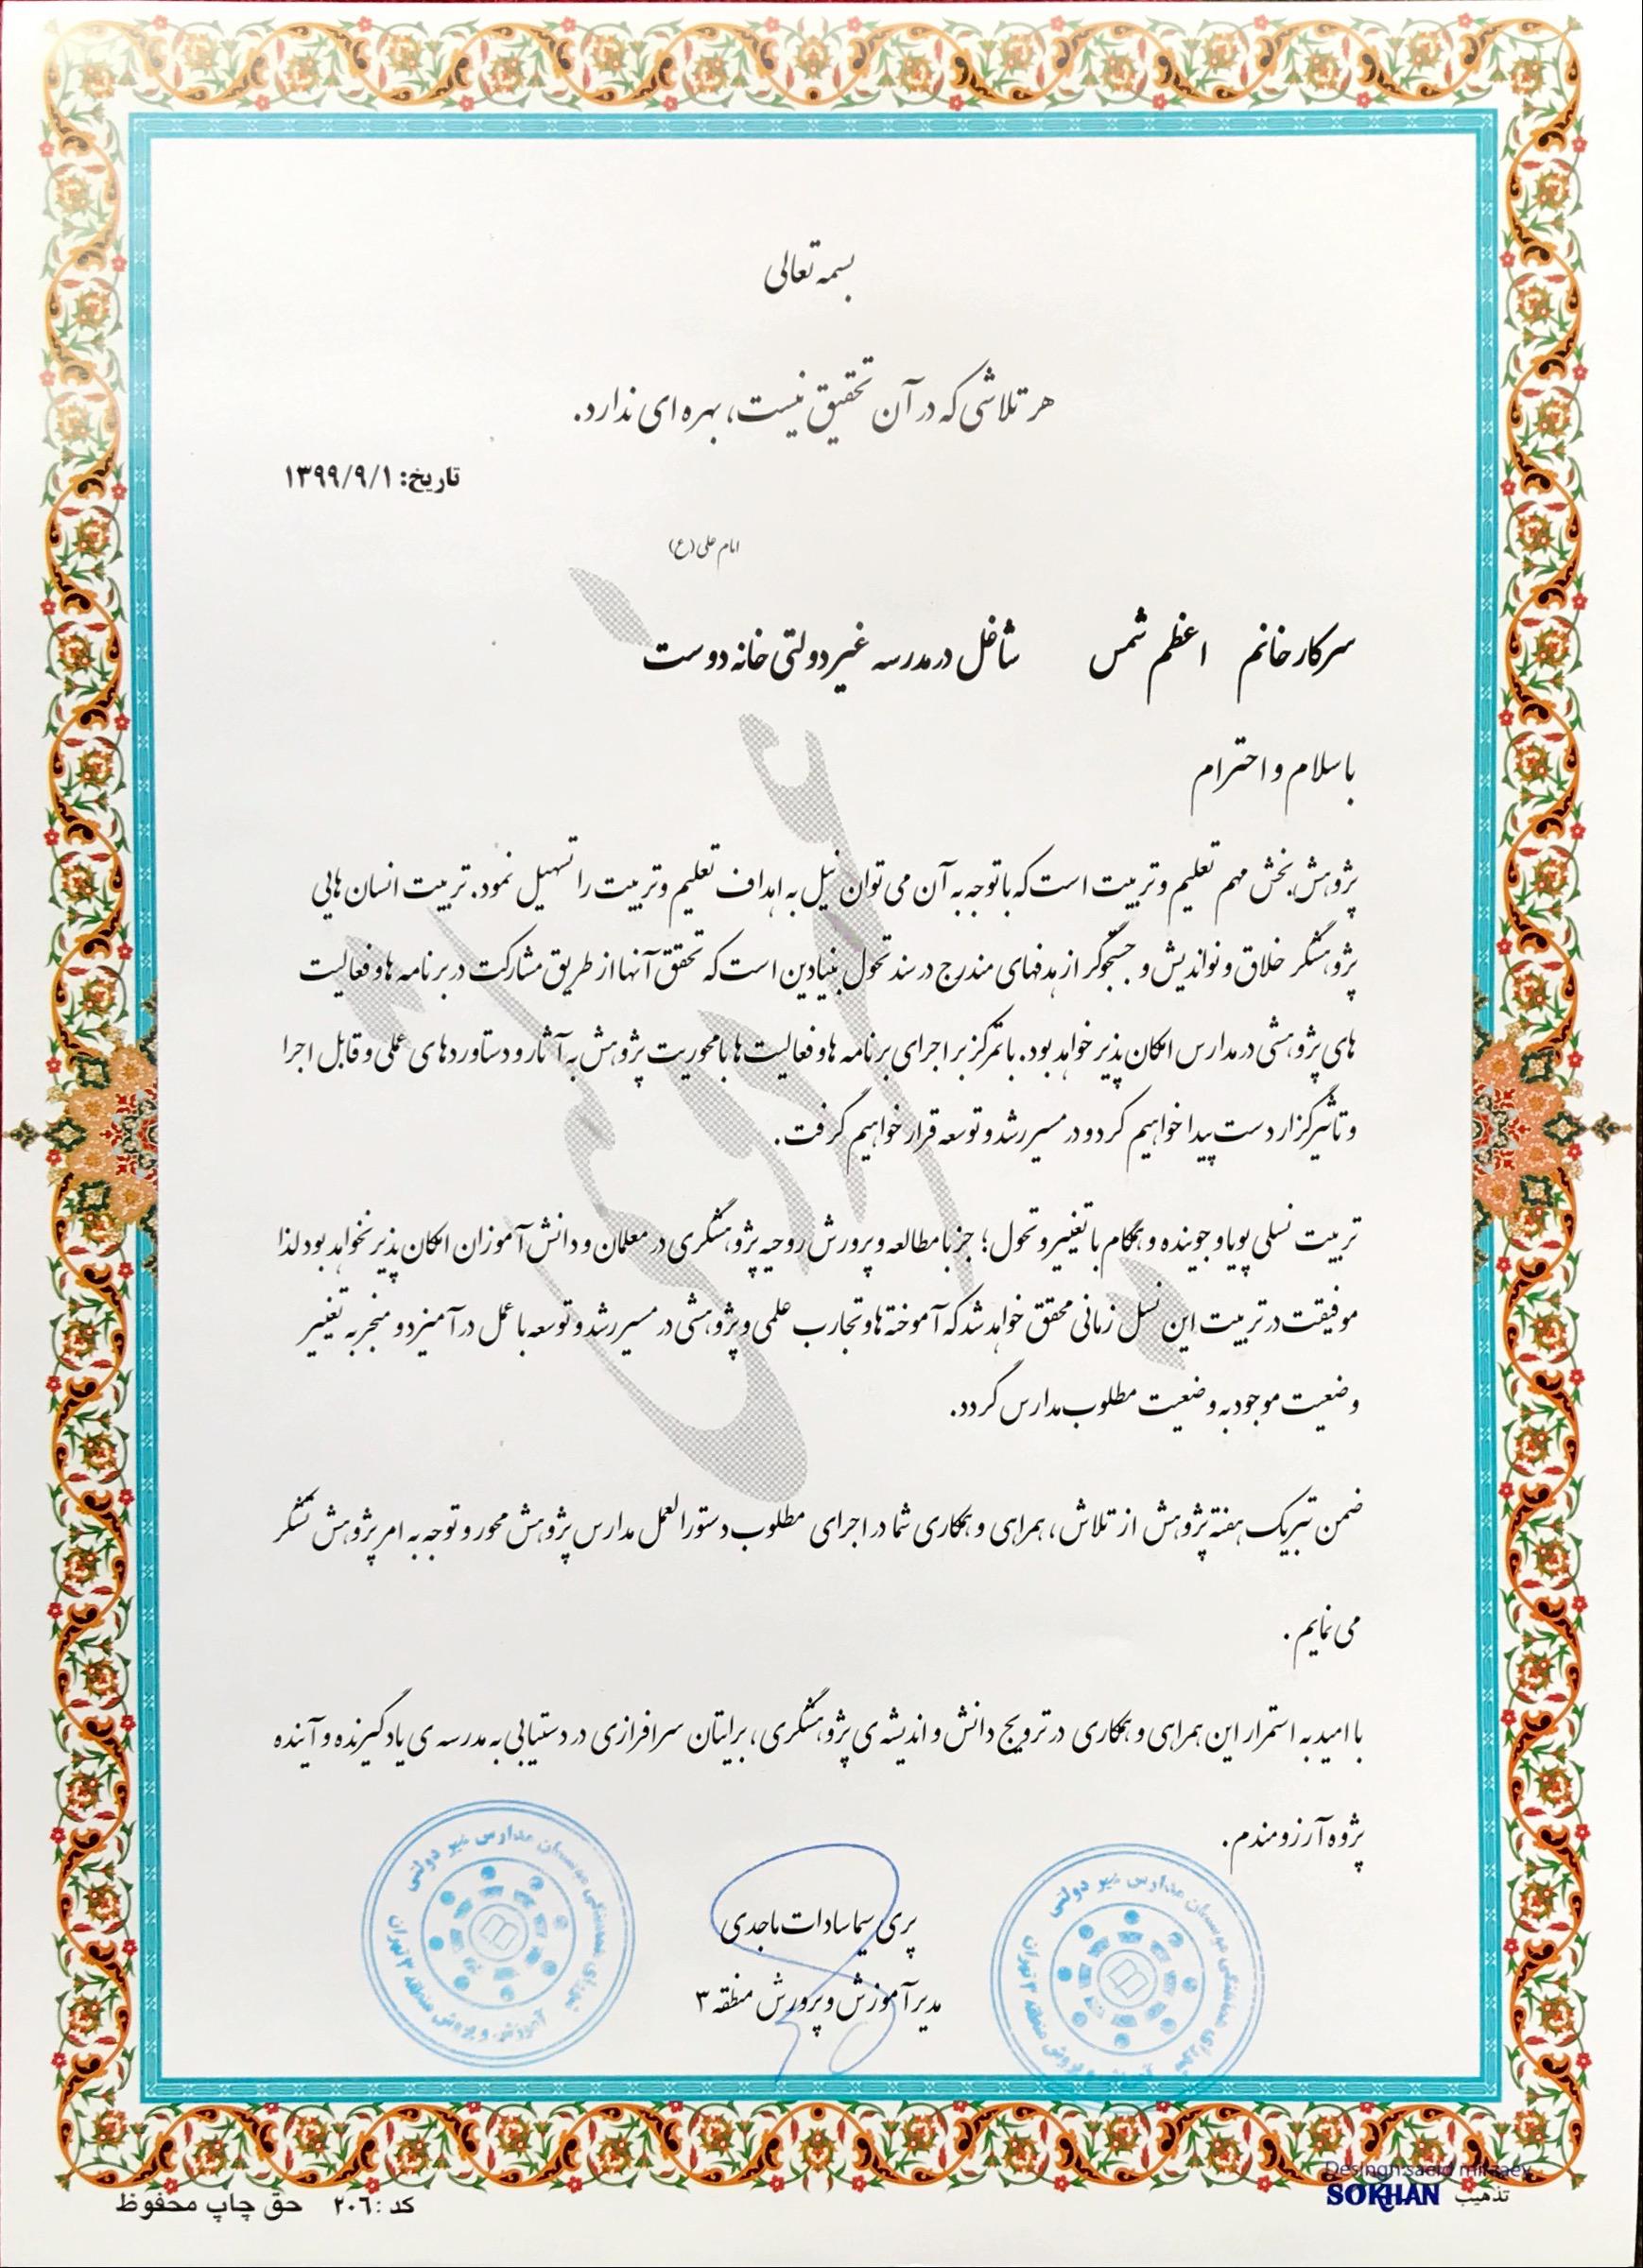 بسمه تعالی
هر تلاشی که در آن تحقیق نیست، بهره ای ندارد.
تاریخ: ۱۳۹۹/۹/۱
امام علی (ع)
سرکار خانم اعظم شمس شاغل در مدرسه غیر دولتی خانه دوست
با سلام و احترام
پژوهش بخش مهم تعلیم و تربیت است که با توجه به آن می توان نیل به اهداف تعلیم و تربیت را تسهیل نمود. تربیت انسان هایی
پژوهشگر خلاق و نواندیش و جستجوگر از هدفهای مندرج در سند تحول بنیادین است که تحقق آنها از طریق مشارکت در برنامه ها و فعالیت
های پژوهشی در مدارس امکان پذیر خواهد بود. با تمرکز بر اجرای برنامه ها و فعالیت ها با محوریت پژوهش به آثار و دستاوردهای عملی و قابل اجرا
و تاثیرگزار دست پیدا خواهیم کرد و در مسیر رشد و توسعه قرار خواهیم گرفت.
تربیت نسلی پویا و جوینده و همگام با تغییر و تحول؛ جز با مطالعه و پرورش روحیه پژوهشگری در معلمان و دانش آموزان امکان پذیر نخواهد بود لذا
موفیقت در تربیت این نسل زمانی محقق خواهد شد که آموخته ها و تجارب علمی و پژوهشی در مسیر رشد و توسعه با عمل در آمیزد و منجر به تغییر
وضعیت موجود به وضعیت مطلوب مدارس گردد.
ضمن تبریک هفته پژوهش از تلاش، همراهی و همکاری شما در اجرای مطلوب دستورالعمل مدارس پژوهش محور و توجه به امر پژوهش تشکر
می نمایم.
با امید به استمرار این همراهی و همکاری در ترویج دانش و اندیشه ی پژوهشگری، برایتان سرافرازی در دستیابی به مدرسه ی یادگیرنده و آینده
پژوه آرزومندم.
پری سیما سادات ماجدی
مدیر آموزش و پرورش منطقه ۳
مدارس غیر دولتی
آموزش و پرورش منطقه ۳ تهران
مدارس غیر دولتی
منطقه ۳ تهران
Desingn:saeid mirzaey
تذهیب SOKHAN
کد : ۲۰۶ حق چاپ محفوظ